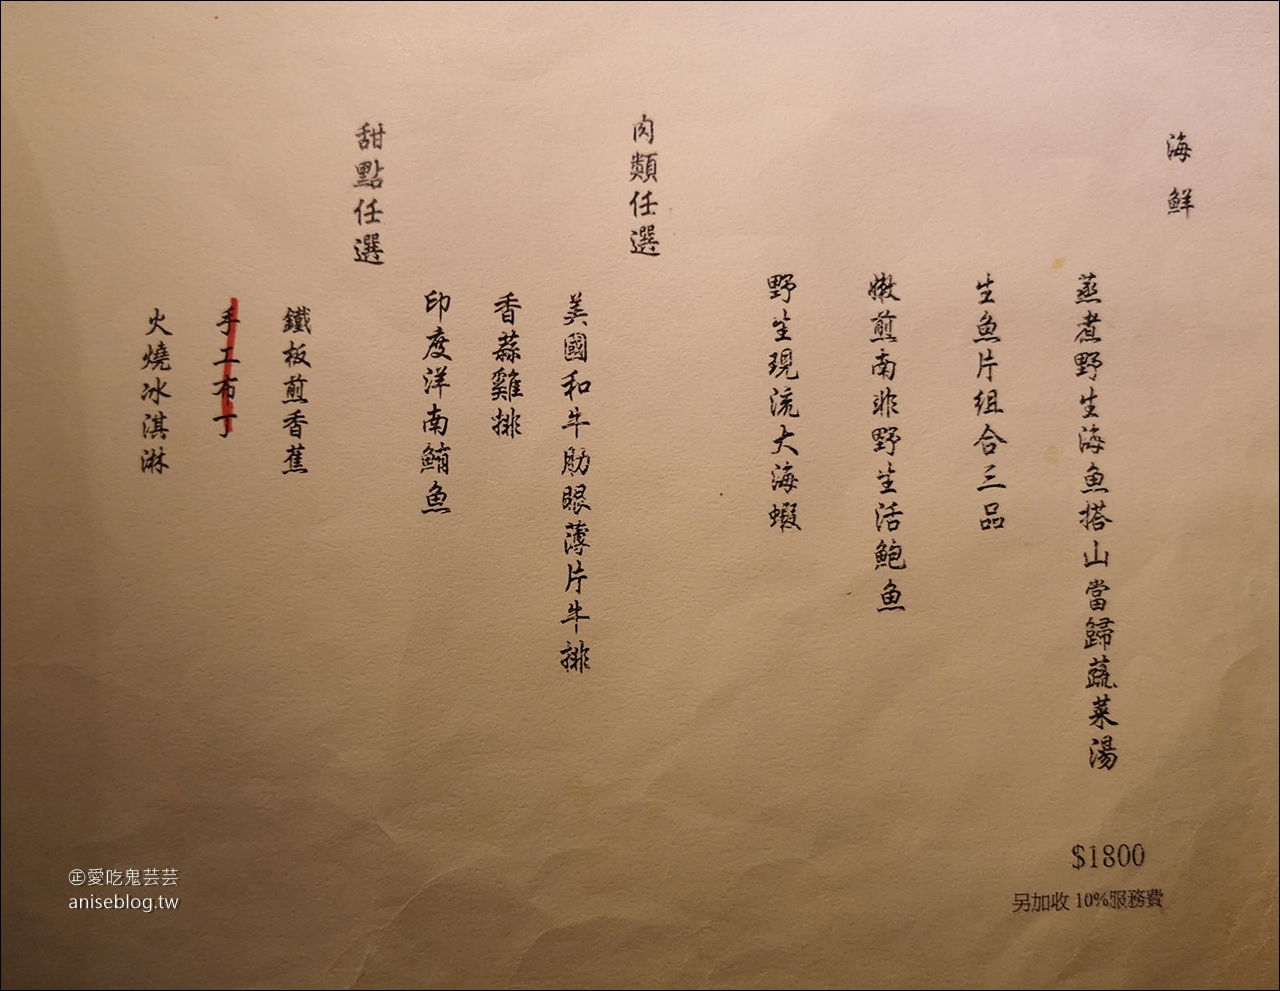 海鮮
蒸煮野生海魚搭山當歸蔬菜湯
生魚片組合三品
嫩煎南非野生活鮑魚
野生現流大海蝦
肉類任選
美國和牛肋眼薄片牛排
香蒜雞排
印度洋南鮪魚
甜點任選
鐵板煎香蕉
手工布丁
火燒冰淇淋
$1800
另加收 10%服務費
㊣愛吃鬼芸芸
aniseblog.tw